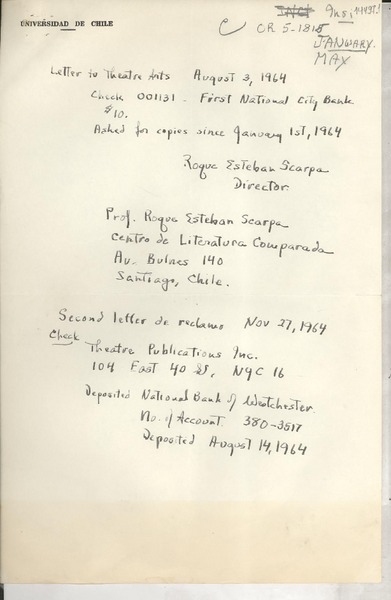 UNIVERSIDAD DE CHILE
C
CR 5-1818
JANUARY.
MAX
Letter to Theatre Arts August 3, 1964
Check 001131 - First National City Bank
$10.
Asked for copies since January 1st, 1964
Roque Esteban Scarpa
Director.
Prof. Roque Esteban Scarpa
Centro de Literatura Comparada
Av. Bulnes 140
Santiago, Chile.
Second letter de reclamo Nov 27, 1964
Check
Theatre Publications Inc.
104 East 40 St, NYC 16
Deposited National Bank of Westchester.
No. of Account. 380-3517
Deposited August 14, 1964